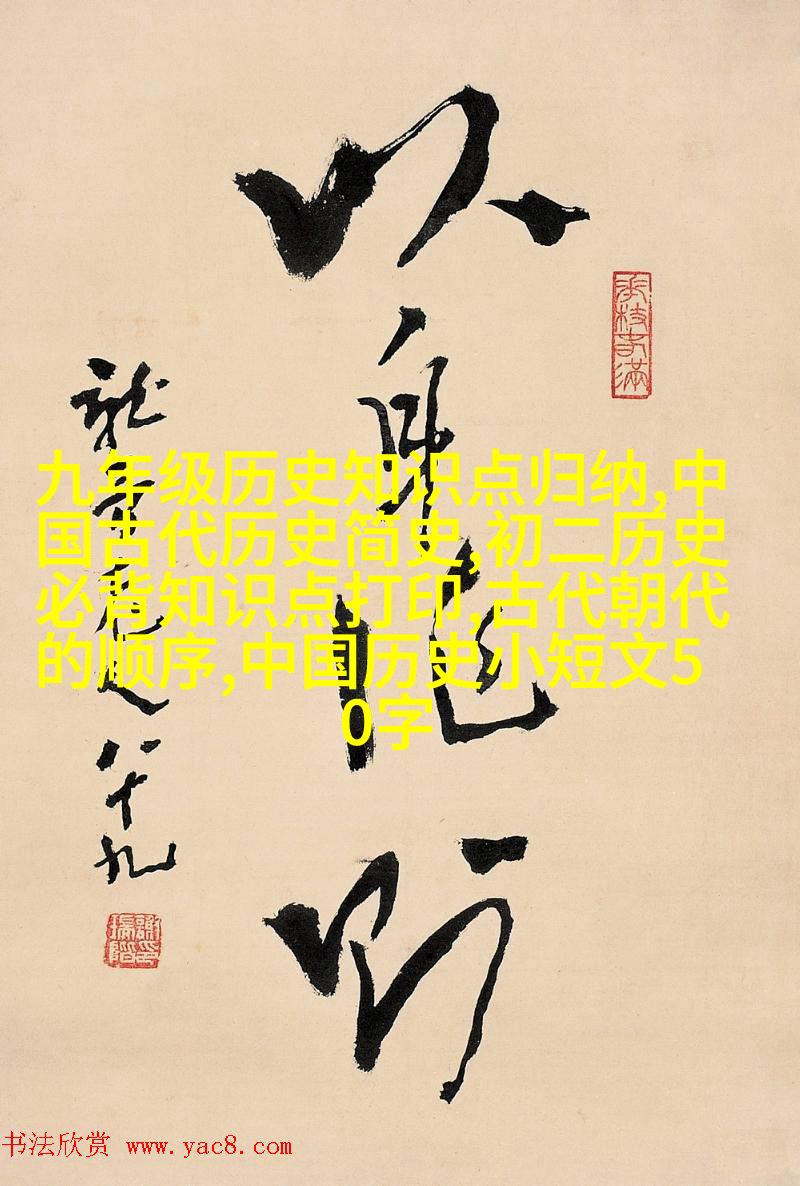 九年级历史知识点归纳,中
国古代历史简史,初二历史
必背知识点打印,古代朝代
的顺序,中国历史小短文5
0字
以身作则
八十九
书法欣赏 www.yac8.com